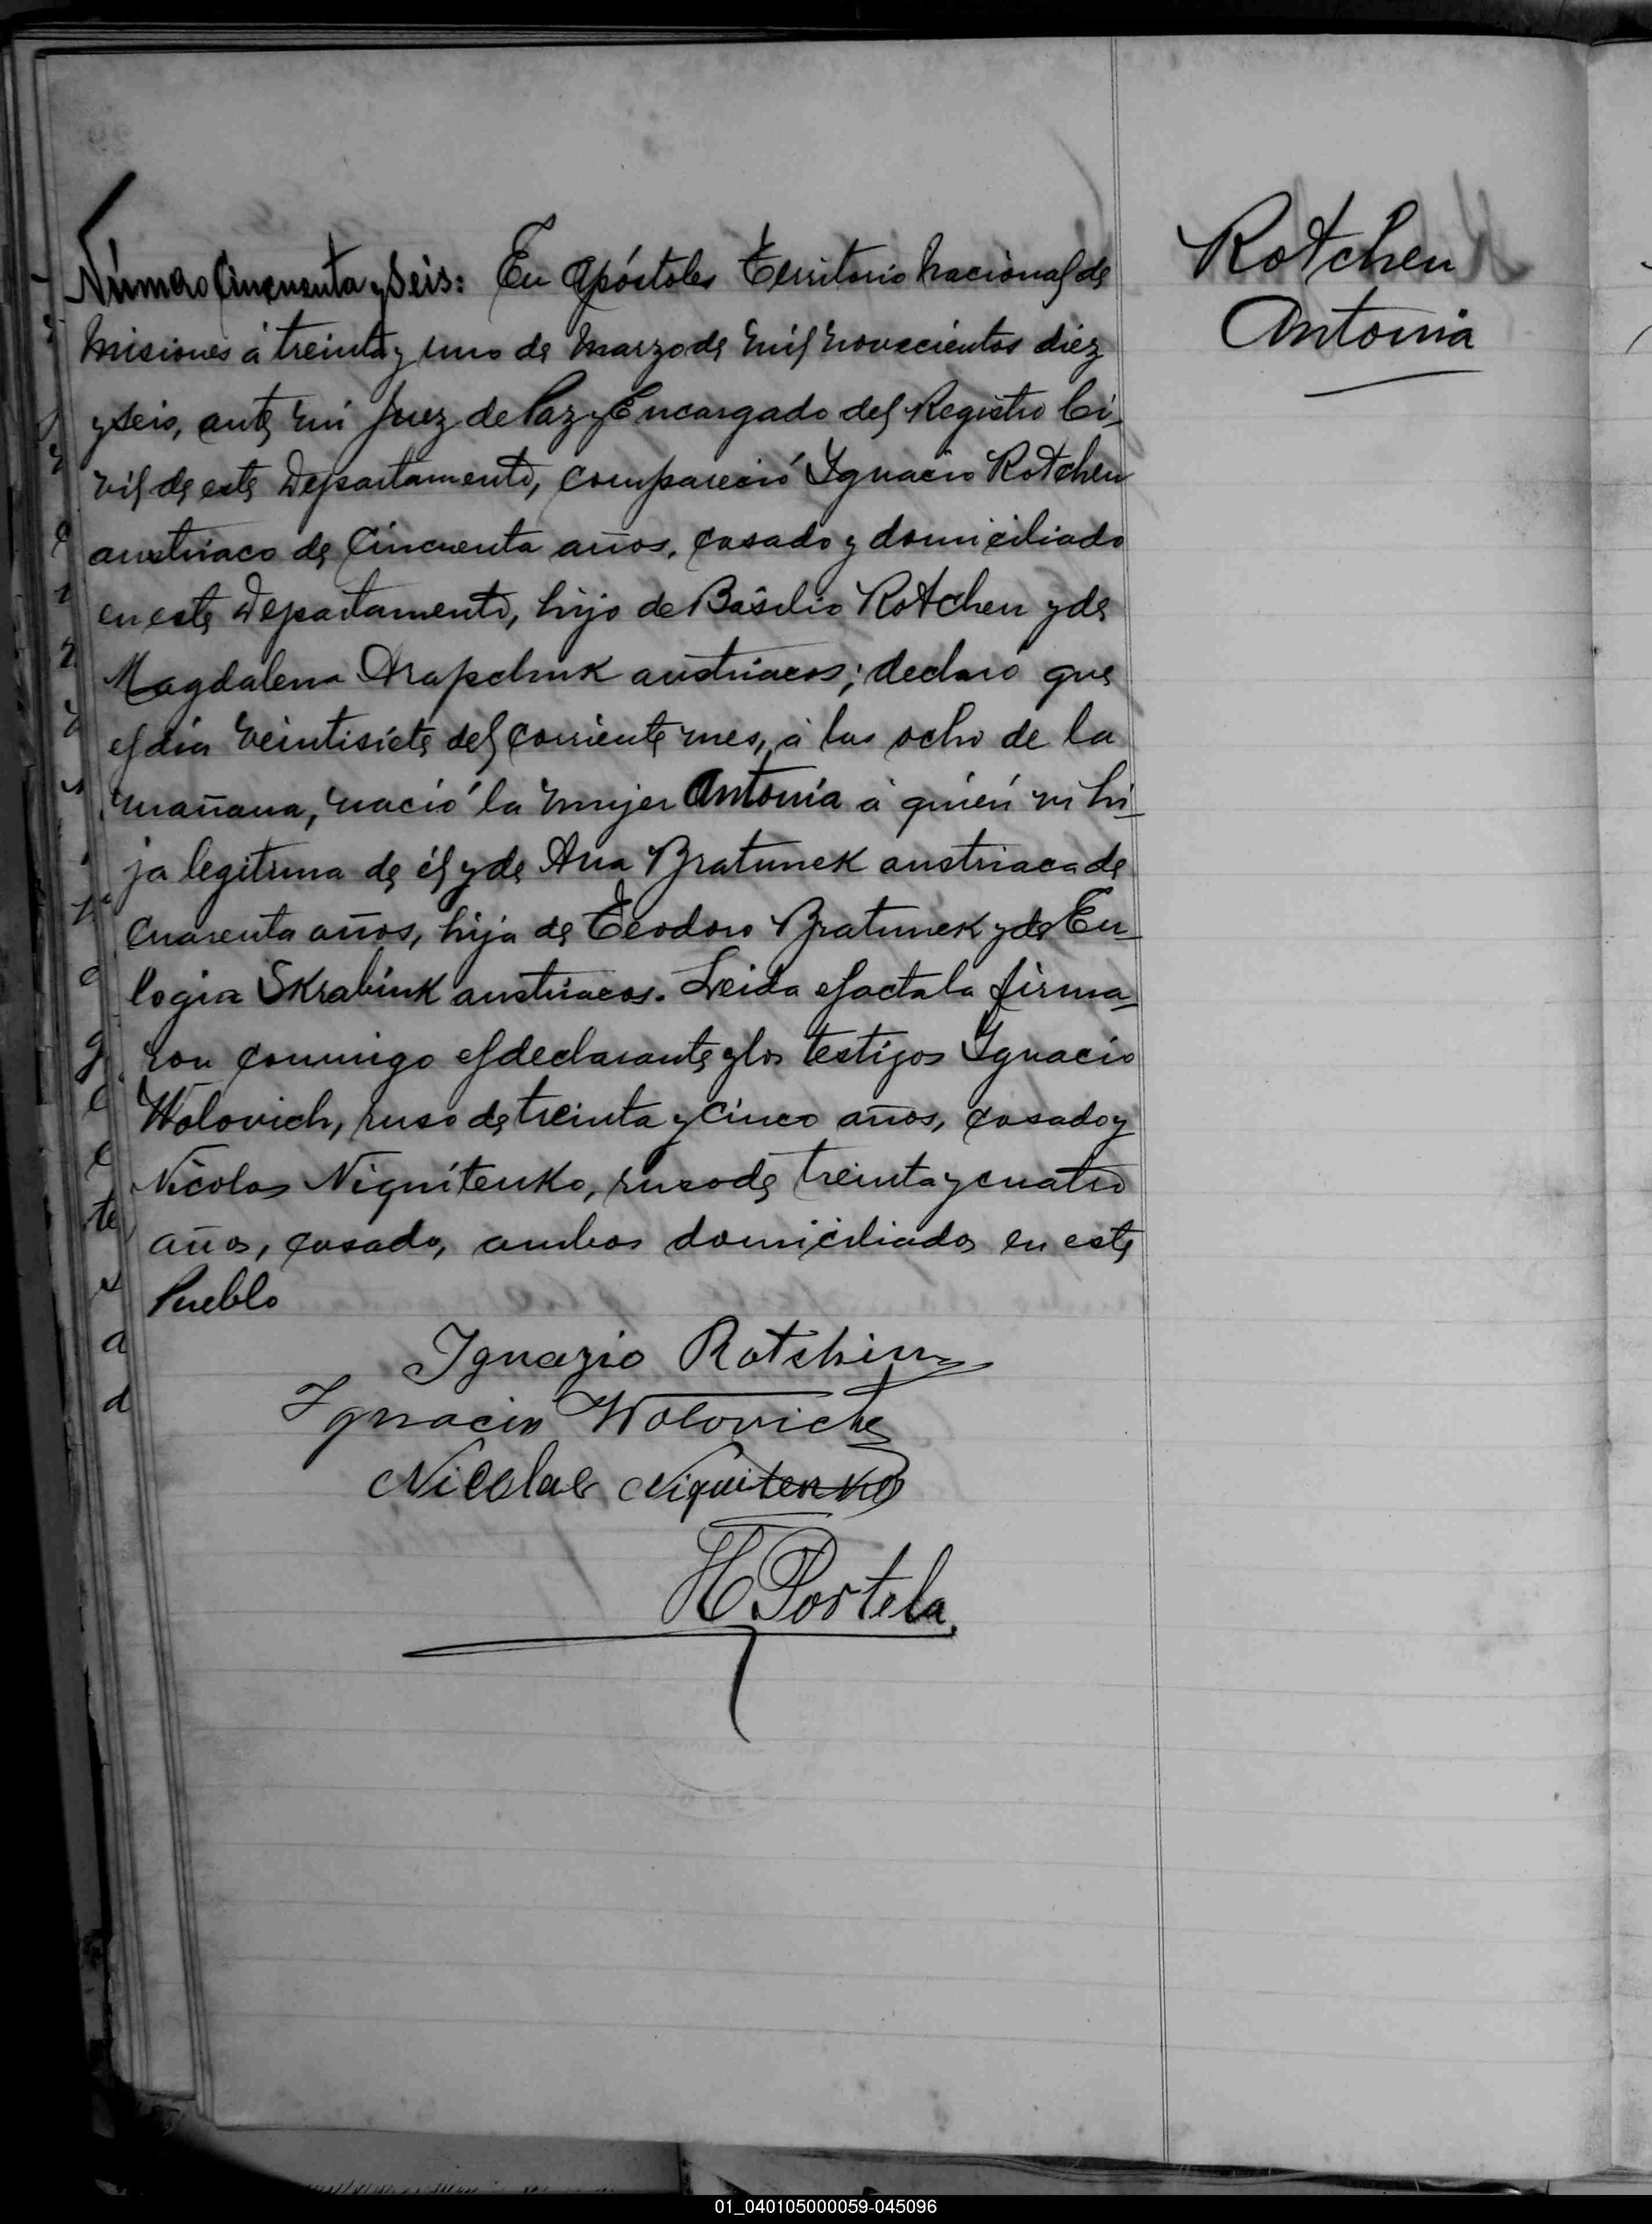 Rotchen
Antonia
Número Cincuenta y Seis: En Apóstoles Territorio Nacional de
Misiones á treinta y uno de Marzo de mil novecientos diez
y seis, ante mi Juez de Paz y Encargado del Registro Ci-
vil de este Departamento, compareció Ignacio Rotchen
austriaco de Cincuenta años, casado y domiciliado
en este Departamento, hijo de Basilio Rotchen y de
Magdalena austriacos; declaró que
el día veintisiete del corriente mes, á las ocho de la
mañana, nació la mujer Antonia á quién vi hi-
ja legitima de él y de Ana Bratunek austriaca de
cuarenta años, hija de Teodoro Bratunek y de Eu-
logia Skrabiuk austriacos. Leida el acta la firma-
ron conmigo el declarante y los testigos Ignacio
Wolovich, ruso de treinta y cinco años, casado y
Nicolas Niquitenko, ruso de treinta y cuatro
años, casado, ambos domiciliados en este
Pueblo
Ignazio Rotchin
Ignacio Wolovich
Nicolas Niquitenko
H. Portela
01_040105000059-045096